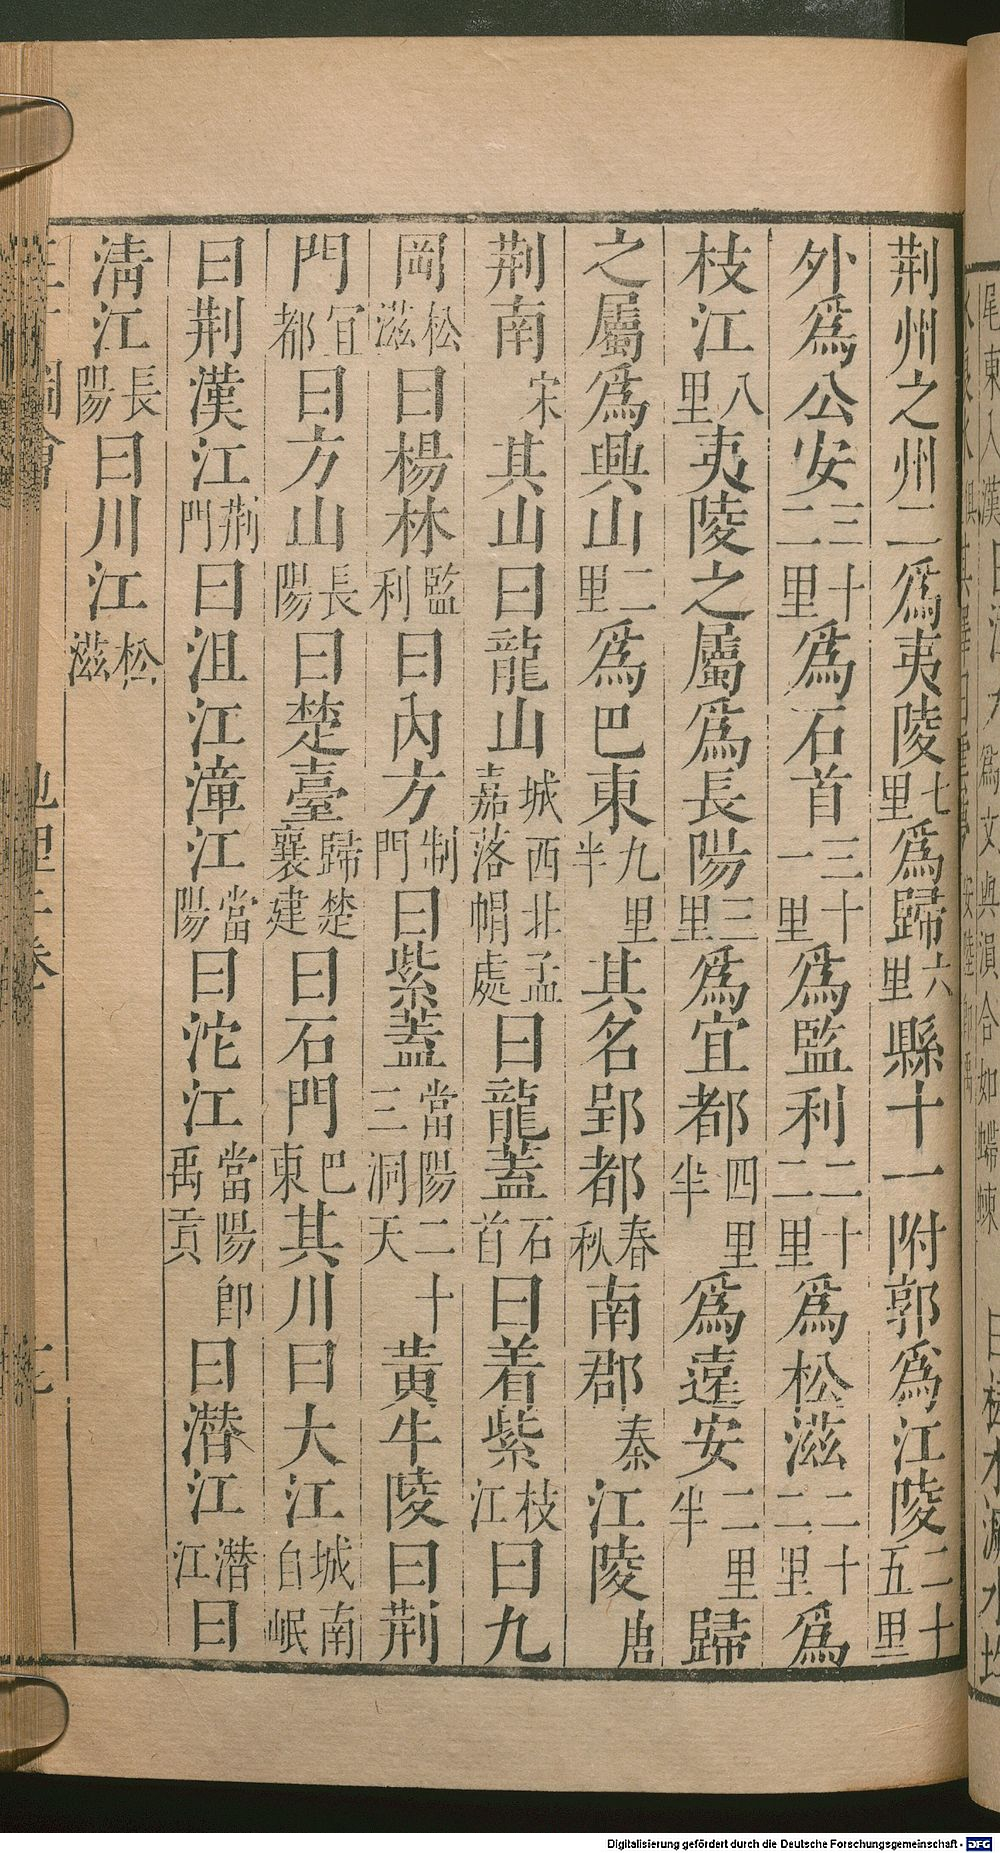 荆州之州二爲夷陵七里爲歸六里縣十一附郭爲江陵二十五里
外爲公安三十二里爲石首三十一里爲監利二十二里爲松滋二十二里爲
枝江八里夷陵之屬爲長陽三里爲宜都四里半爲遠安二里半歸
之屬爲興山二里爲巴東九里半其名郢都春秋南郡秦江陵唐
荆南宋其山曰龍山城西北孟嘉落帽處曰龍蓋石首曰着紫枝江曰九
岡松滋曰楊林監利曰內方荆門曰紫蓋當陽二十三洞天黃牛陵曰荆
門宜都曰方山長陽曰楚臺歸楚襄建曰石門巴東其川曰大江城南自岷
曰荆漢江荆門曰沮江漳江當陽曰沱江當陽卽禹貢曰潛江潛江曰
淸江長陽曰川江松滋
地理三卷
Digitalisierung gefördert durch die Deutsche Forschungsgemeinschaft - DFG